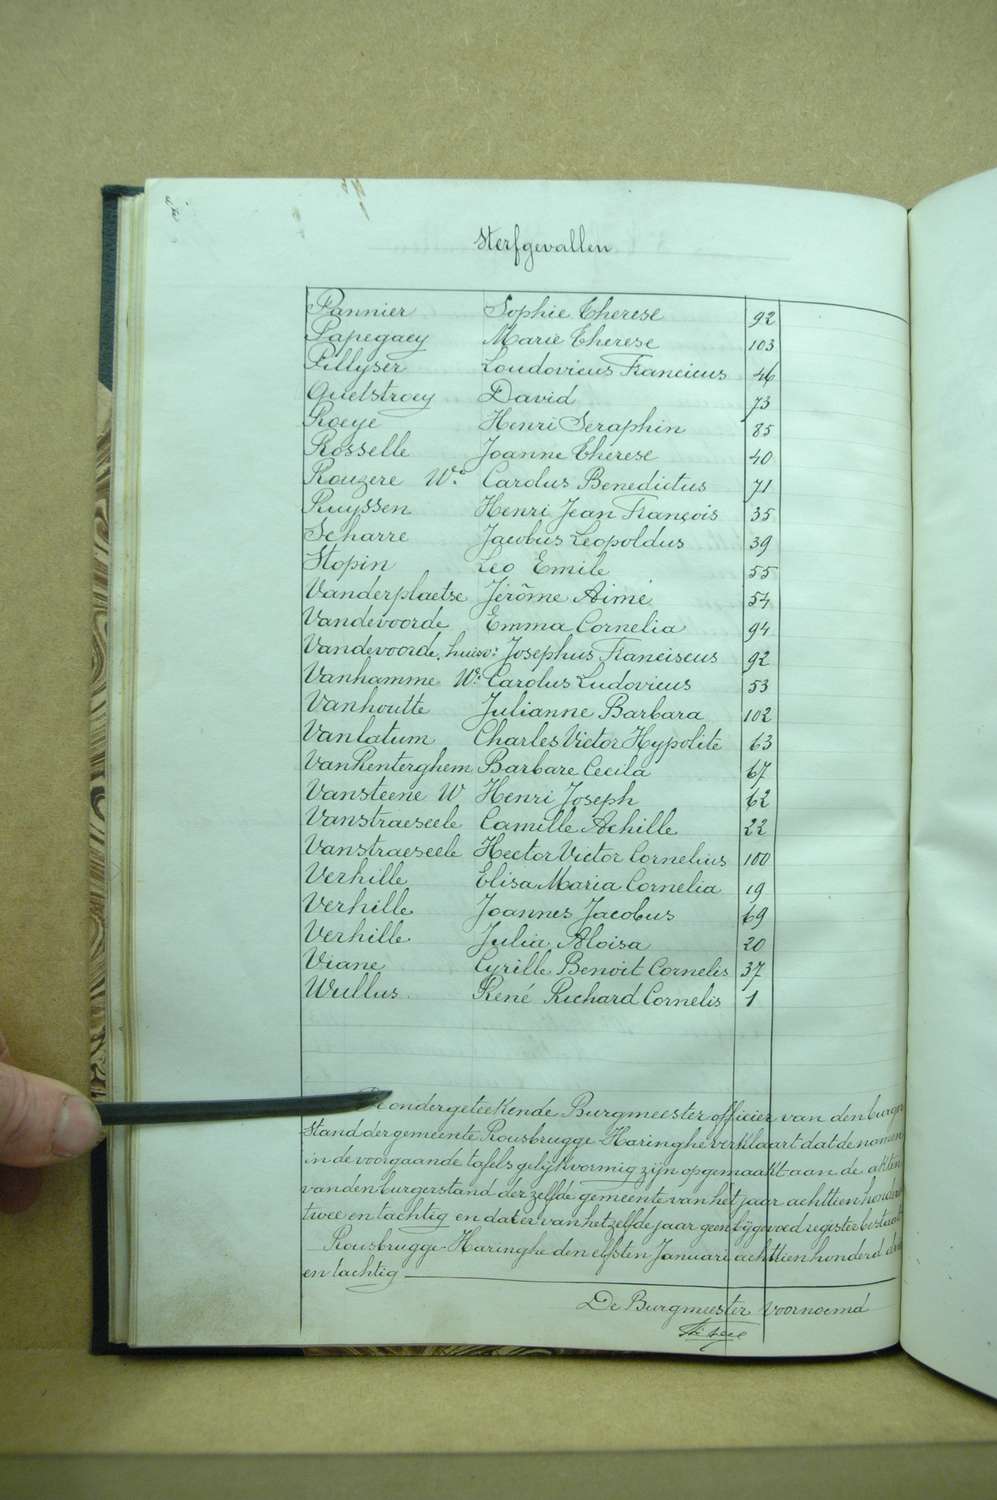 Sterfgevallen
Pannier Sophie Therese 92
Papegaey Marie Therese 103
Pillyser Loudovicus Francicus 46
Quetstroey David 73
Roeye Henri Seraphin 85
Rosselle Joanne Therese 40
Rouzere We Carolus Benedictus 71
Ruyssen Henri Jean François 35
Scharre Jacobus Leopoldus 39
Stopin Leo Emile 55
Vanderplaetse Jérôme Aimé 54
Vandevoorde Emma Cornelia 94
Vandevoorde, huisv: Josephus Franciscus 92
Vanhamme We Carolus Ludovicus 53
Vanhoutte Julianne Barbara 102
Vanlatum Charles Victor Hypolite 63
VanRenterghem Barbare Cecila 67
Vansteene W Henri Joseph 62
Vanstraeseele Camille Achille 22
Vanstraeseele Hector Victor Cornelius 100
Verhille Elisa Maria Cornelia 19
Verhille Joannes Jacobus 69
Verhille Julia Aloisa 20
Viane Cyrille Benoit Cornelis 37
Wullus René Richard Cornelis 1
ondergeteekende Burgmeester officier van den burger
stand der gemeente Rousbrugge-Haringhe verklaart dat de namen
in de voorgaande tafels gelijkvormig zijn opgemaakt aan de akten
van den burgerstand derzelfde gemeente van het jaar achttien honderd
twee en tachtig en dat er van hetzelfde jaar geen bijgevoed register bestaat
Rousbrugge-Haringhe den elfsten Januari achttien honderd drie
en tachtig
De Burgmeester voornoemd